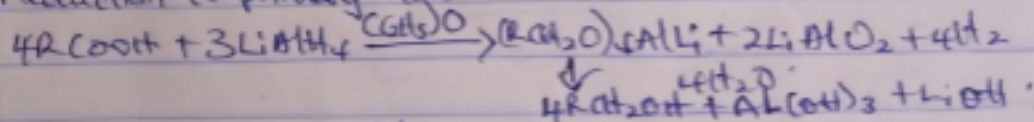 4RCOOH + 3LiAlH4 (C2H5)2O → (RCH2O)4AlLi + 2LiAlO2 + 4H2
↓ 4H2O
4RCH2OH + Al(OH)3 + LiOH.